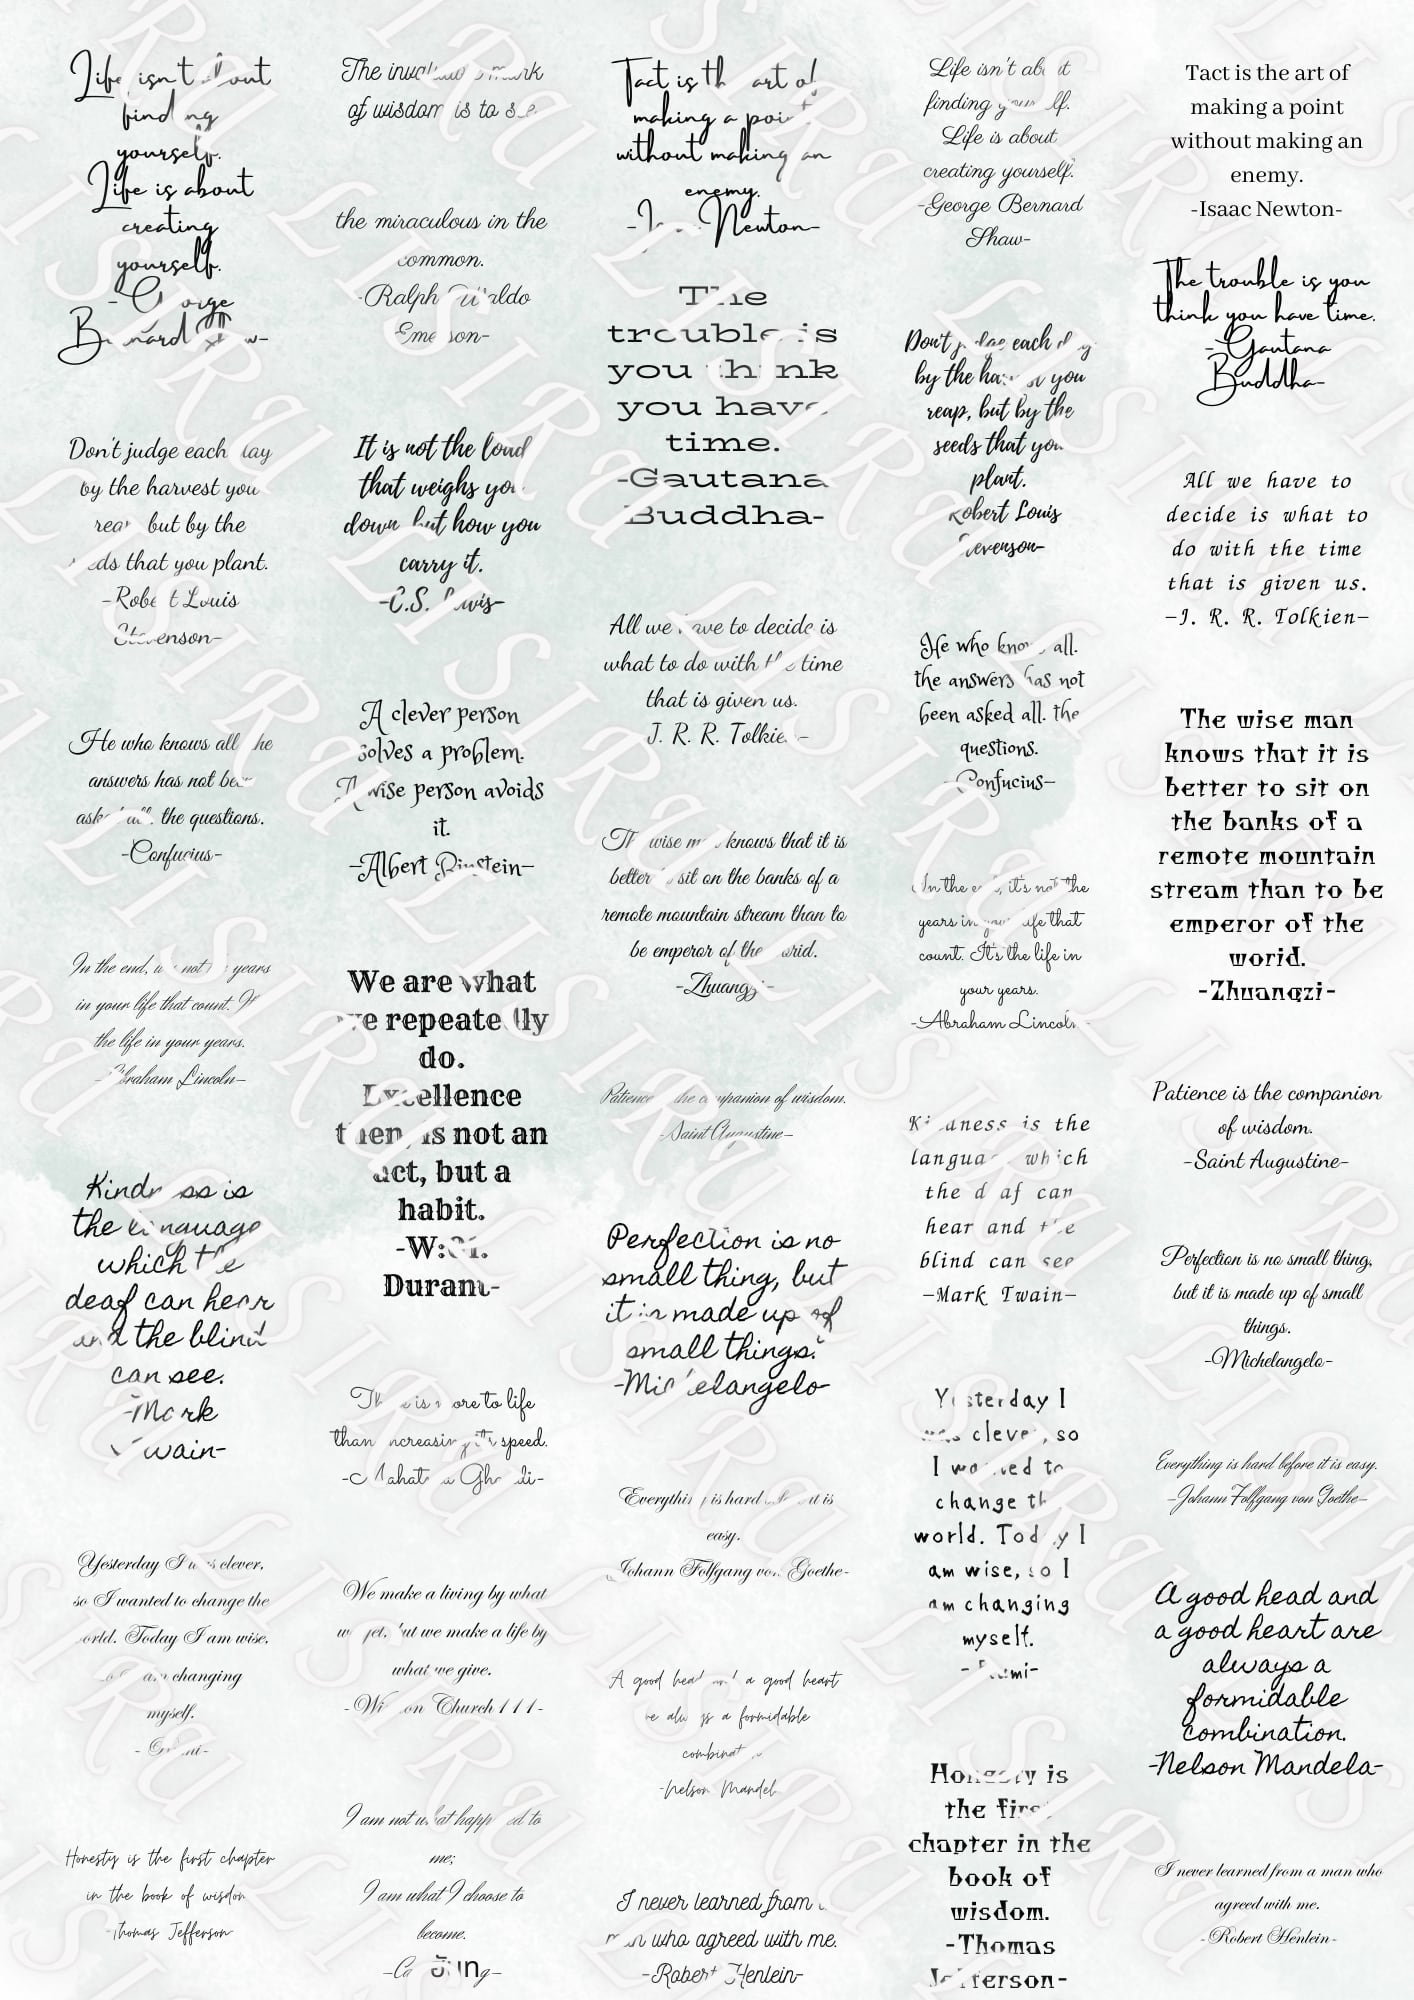 Life isn't about
finding
yourself.
Life is about
creating
yourself.
-George
Bernard Shaw-
Don't judge each day
by the harvest you
reap but by the
seeds that you plant.
-Robert Louis
Stevenson-
He who knows all the
answers has not been
asked all the questions.
-Confucius-
In the end, it's not the years
in your life that count. It's
the life in your years.
-Abraham Lincoln-
Kindness is
the language
which the
deaf can hear
and the blind
can see.
-Mark
Twain-
Yesterday I was clever,
so I wanted to change the
world. Today I am wise,
so I am changing
myself.
Honesty is the first chapter
in the book of wisdom
-Thomas Jefferson-
The invariable mark
of wisdom is to see
the miraculous in the
common.
-Ralph Waldo
Emerson-
It is not the load
that weighs you
down but how you
carry it.
-C.S. Lewis-
A clever person
solves a problem.
A wise person avoids
it.
-Albert Einstein-
We are what
we repeatedly
do.
Excellence
then, is not an
act, but a
habit.
Durant-
There is more to life
than increasing it's speed.
-Mahatma Ghandi-
We make a living by what
we get, but we make a life by
what we give.
-Winston Church111-
I am not what happened to
me;
I am what I choose to
become.
Tact is the art of
making a point
without making an
enemy.
-Isaac Newton-
The
trouble is
you think
you have
time.
-Gautana
Buddha-
All we have to decide is
what to do with the time
that is given us.
J. R. R. Tolkien-
The wise man knows that it is
better to sit on the banks of a
remote mountain stream than to
be emperor of the worid.
-Zhuangzi-
Patience is the companion of wisdom.
-Saint Augustine-
Perfection is no
small thing, but
it is made up of
small things.
-Michelangelo-
Everything is hard before it is
easy.
Johann Folfgang von Goethe-
A good head and a good heart
are always a formidable
combination
-Nelson Mandela
I never learned from a
man who agreed with me.
-Robert Henlein-
Life isn't about
finding yourself.
Life is about
creating yourself.
-George Bernard
Shaw-
Don't judge each day
by the harvest you
reap, but by the
seeds that you
plant.
Robert Louis
Stevenson-
He who knows all.
the answers has not
been asked all. the
questions.
-Confucius-
In the end, it's not the
years in your life that
count. It's the life in
your years.
-Abraham Lincoln-
Kindness is the
language which
the deaf can
hear and the
blind can see
-Mark Twain-
Yesterday I
was clever, so
I wanted to
change the
world. Today I
am wise, so I
am changing
myself.
-Rumi-
Honesty is
the first
chapter in the
book of
wisdom.
-Thomas
Jefferson-
Tact is the art of
making a point
without making an
enemy.
-Isaac Newton-
The trouble is you
think you have time.
-Gautana
Buddha-
All we have to
decide is what to
do with the time
that is given us.
-J. R. R. Tolkien-
The wise man
knows that it is
better to sit on
the banks of a
remote mountain
stream than to be
emperor of the
worid.
-Zhuangzi-
Patience is the companion
of wisdom.
-Saint Augustine-
Perfection is no small thing,
but it is made up of small
things.
-Michelangelo-
Everything is hard before it is easy.
-Johann Folfgang von Goethe-
A good head and
a good heart are
always a
formidable
combination.
-Nelson Mandela-
I never learned from a man who
agreed with me.
-Robert Henlein-